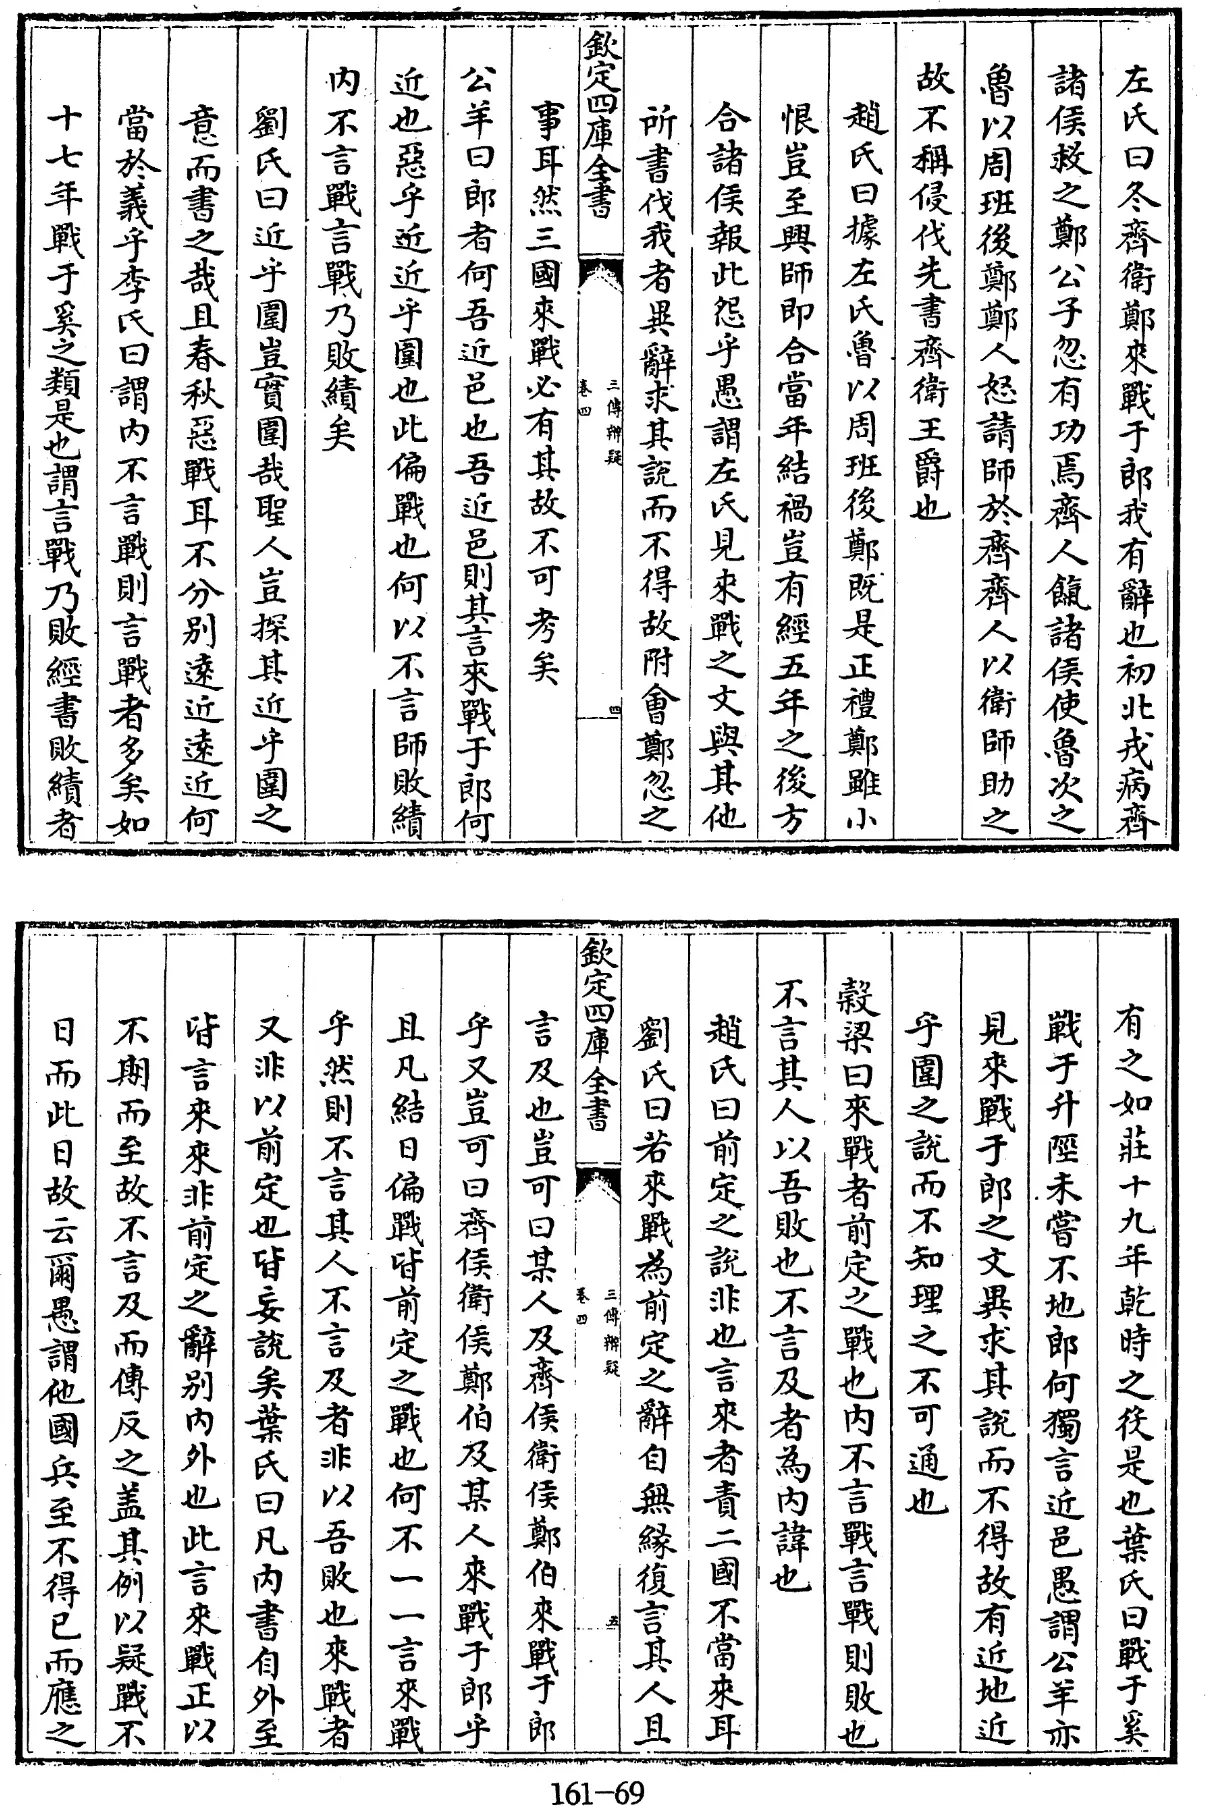 左氏曰冬齊衛鄭來戰于郎我有辭也初北戎病齊
諸侯救之鄭公子忽有功焉齊人餼諸侯使魯次之
魯以周班後鄭鄭人怒請師於齊齊人以衛師助之
故不稱侵伐先書齊衛王爵也
趙氏曰據左氏魯以周班後鄭既是正禮鄭雖小
恨豈至興師即合當年結禍豈有經五年之後方
合諸侯報此怨乎愚謂左氏見來戰之文與其他
所書伐我者異辭求其說而不得故附會鄭忽之
欽定四庫全書
三傳辨疑
卷四
四
事耳然三國來戰必有其故不可考矣
公羊曰郎者何吾近邑也吾近邑則其言來戰于郎何
近也惡乎近近乎圍也此偏戰也何以不言師敗績
内不言戰言戰乃敗績矣
劉氏曰近乎圍豈實圍哉聖人豈探其近乎圍之
意而書之哉且春秋惡戰耳不分別遠近遠近何
當於義乎李氏曰謂内不言戰則言戰者多矣如
十七年戰于奚之類是也謂言戰乃敗經書敗績者
有之如莊十九年乾時之役是也葉氏曰戰于奚
戰于升陘未嘗不地郎何獨言近邑愚謂公羊亦
見來戰于郎之文異求其說而不得故有近地近
乎圍之說而不知理之不可通也
穀梁曰來戰者前定之戰也内不言戰言戰則敗也
不言其人以吾敗也不言及者為内諱也
趙氏曰前定之說非也言來者責二國不當來耳
劉氏曰若來戰為前定之辭自無緣復言其人且
欽定四庫全書
三傳辨疑
卷四
五
言及也豈可曰某人及齊侯衛侯鄭伯來戰于郎
乎又豈可曰齊侯衛侯鄭伯及某人來戰于郎乎
且凡結日偏戰皆前定之戰也何不一一言來戰
乎然則不言其人不言及者非以吾敗也來戰者
又非以前定也皆妄說矣葉氏曰凡内書自外至
皆言來來非前定之辭別内外也此言來戰正以
不期而至故不言及而傳反之盖其例以疑戰不
日而此日故云爾愚謂他國兵至不得已而應之
161-69